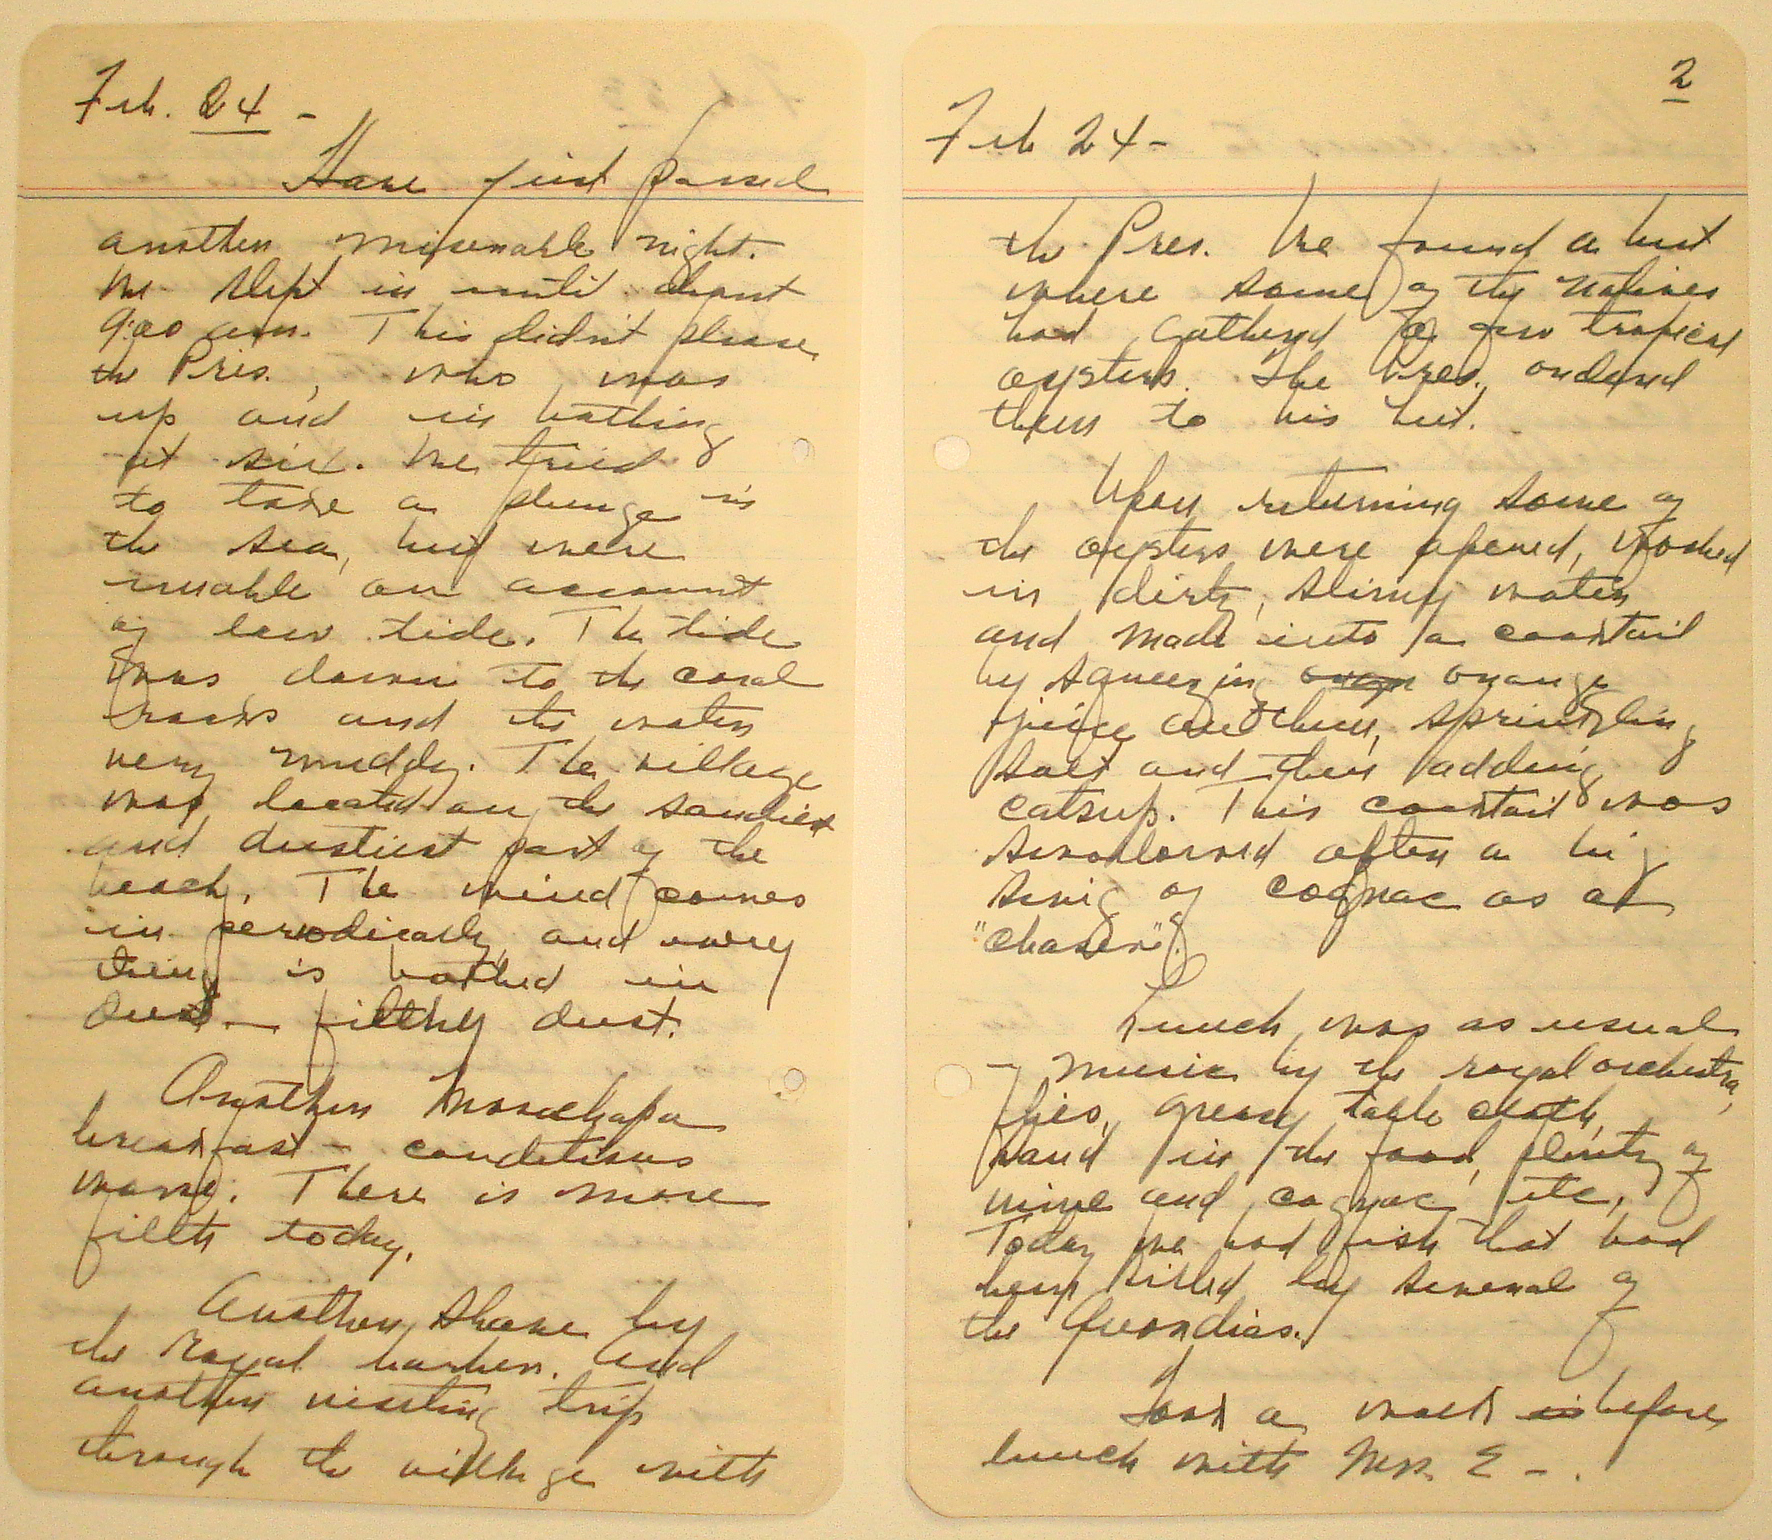 Feb. 24 -
Have just passed
another miserable night.
We slept in until about
9:00 a.m. This didn't please
the Pres., who was
up and in bathing
at six. We tried
to take a plunge in
the sea, but were
unable on account
of low tide. The tide
was down to the coral
rocks and the water
very muddy. The village
was located on the sandiest
and dustiest part of the
beach. The wind comes
in periodically and every
thing is bathed in
dust — filthy dust.
Another
breakfast - conditions
worse. There is more
filth today.
Another shave by
the Royal barber. And
another visiting trip
through the village with
2
Feb 24 -
the Pres. We found a hut
where some of the natives
had gathered a few tropical
oysters. The Pres. ordered
them to his hut.
Upon returning some of
the oysters were opened, washed
in dirty, slimy water
and made into a cocktail
by squeezing orange
juice on them, sprinkling
salt and then adding
catsup. This cocktail was
swallowed after a big
swig of cognac as a
"chaser".
Lunch was as usual
- music by the royal orchestra,
flies, greasy table cloth,
sand in the food, plenty of
wine and cognac, etc.
Today we had fish that had
been killed by several of
the Guardias.
Took a walk before
lunch with Mrs. E - .